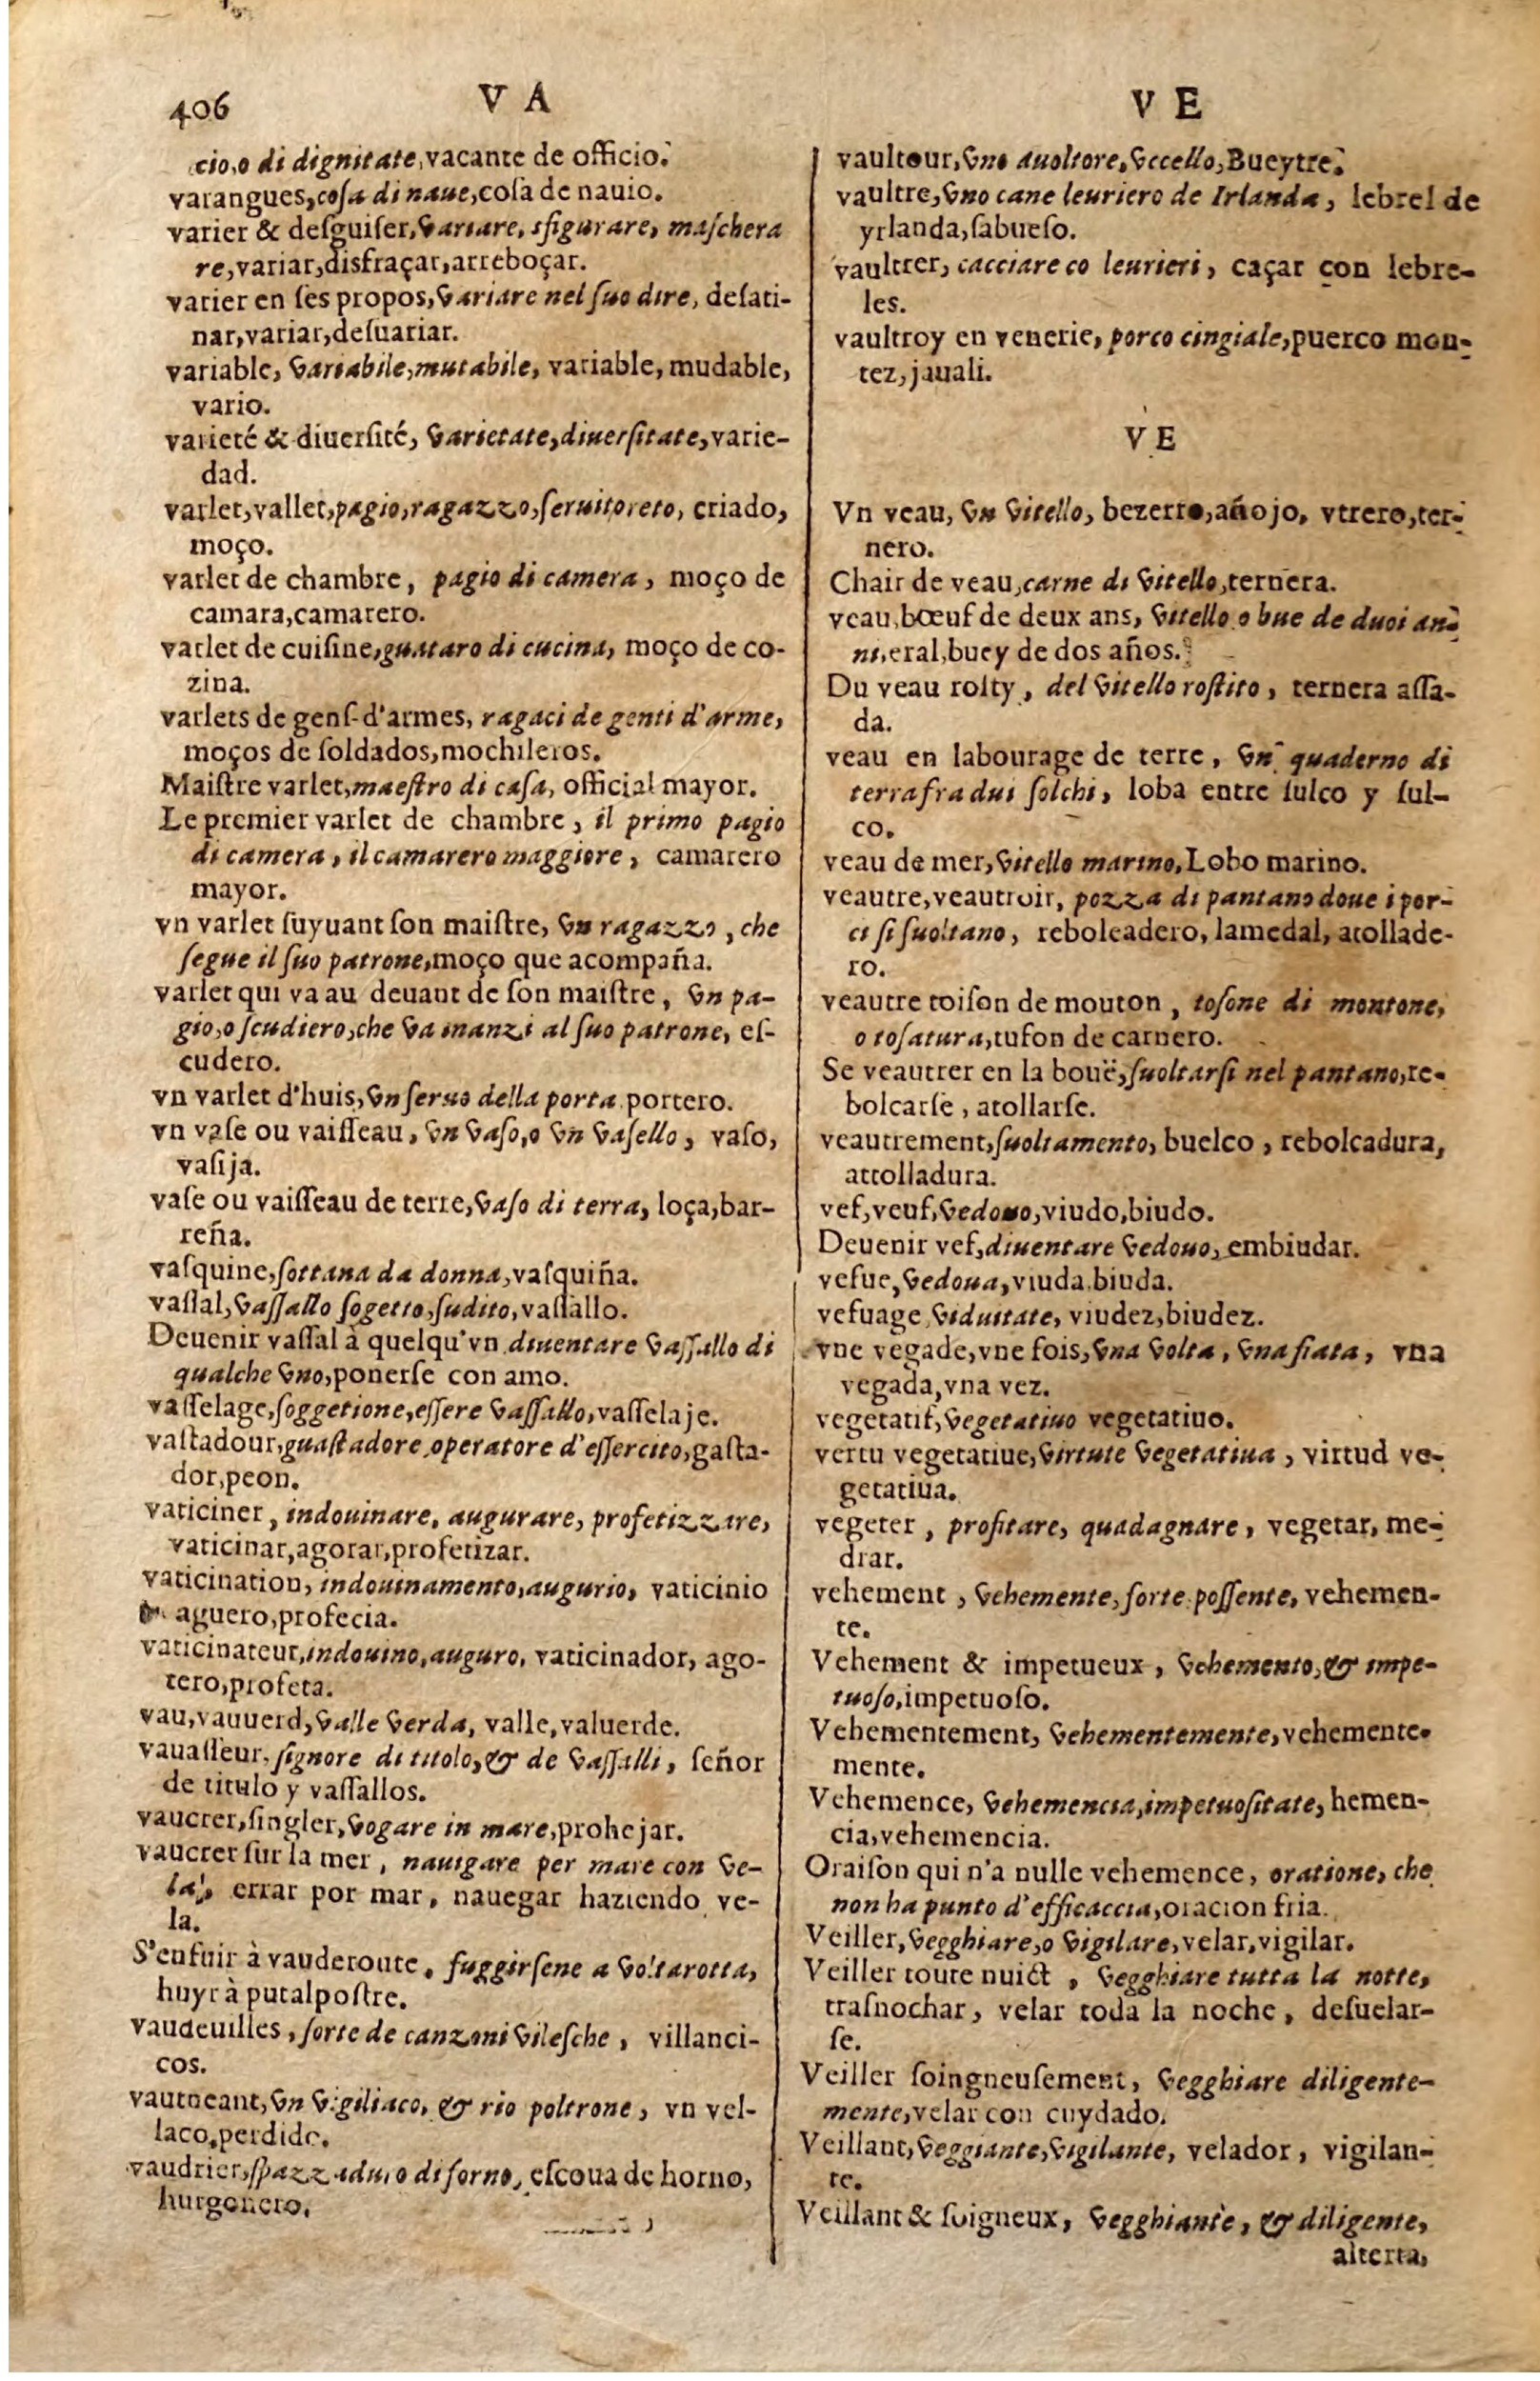 406
V A
cio,o di dignitate,vacante de officio.
varangues,coſa di naue,coſa de nauio.
varier & deſguiſer,Variare, sfigurare, maſchera
re,variar,disfraçar,arreboçar.
varier en ſes propos,Variare nel ſuo dire, deſati-
nar,variar,deſuariar.
variable, Variabile,mutabile, variable, mudable,
vario.
varieté & diuerſité, Varietate,diuerſitate,varie-
dad.
varlet,vallet,pagio,ragazzo,ſeruitoreto, criado,
moço.
varlet de chambre, pagio di camera, moço de
camara,camarero.
varlet de cuiſine,guataro di cucina, moço de co-
zina.
varlets de genſ-d'armes, ragaci de genti d'arme,
moços de ſoldados,mochileros.
Maiſtre varlet,maeſtro di caſa, official mayor.
Le premier varlet de chambre, il primo pagio
di camera, il camarero maggiore, camarero
mayor.
vn varlet ſuyuant ſon maiſtre, Vn ragazzo, che
ſegue il ſuo patrone,moço que acompaña.
varlet qui va au deuant de ſon maiſtre, Vn pa-
gio,o ſcudiero,che Va inanzi al ſuo patrone, eſ-
cudero.
vn varlet d'huis,Vn ſeruo della porta portero.
vn vaſe ou vaiſſeau, Vn Vaſo,o Vn Vaſello, vaſo,
vaſija.
vaſe ou vaiſſeau de terre,Vaſo di terra, loça,bar-
reña.
vaſquine,ſottana da donna,vaſquiña.
vaſſal,Vaſſallo ſogetto,ſudito,vaſſallo.
Deuenir vaſſal à quelqu'vn diuentare Vaſſallo di
qualche Vno,ponerſe con amo.
vaſſelage,ſoggetione,eſſere Vaſſallo,vaſſelaje.
vaſtadour,guaſtadore,operatore d'eſſercito,gaſta-
dor,peon.
vaticiner, indouinare, augurare, profetizzare,
vaticinar,agorar,profetizar.
vaticination, indouinamento,augurio, vaticinio
aguero,profecia.
vaticinateur,indouino,auguro, vaticinador, ago-
rero,profeta.
vau,vauuerd,Valle Verda, valle,valuerde.
vauaſſeur,ſignore di titolo,& de Vaſſalli, ſeñor
de titulo y vaſſallos.
vaucrer,ſingler,Vogare in mare,prohejar.
vaucrer ſur la mer, nauigare per mare con Ve-
la, errar por mar, nauegar haziendo ve-
la.
S'enfuir à vauderoute, fuggirſene a Voltarotta,
huyr à putalpoſtre.
vaudeuilles, ſorte de canzoni Vileſche, villanci-
cos.
vautneant,Vn Vigiliaco, & rio poltrone, vn vel-
laco,perdido.
vaudrier,ſpazzaduro di forno, eſcoua de horno,
hurgonero.
V E
vaultour,Vno auoltore,Vccello,Bueytre.
vaultre,Vno cane leuriero de Irlanda, lebrel de
yrlanda,ſabueſo.
vaultrer, cacciare co leurieri, caçar con lebre-
les.
vaultroy en venerie, porco cingiale,puerco mon-
tez,jauali.
V E
Vn veau, Vn Vitello, bezerro,añojo, vtrero,ter-
nero.
Chair de veau,carne di Vitello,ternera.
veau,bœuf de deux ans, Vitello o bue de duoi an-
ni,eral,buey de dos años.
Du veau roſty, del Vitello roſtito, ternera aſſa-
da.
veau en labourage de terre, Vn quaderno di
terra fra dui ſolchi, loba entre ſulco y ſul-
co.
veau de mer,Vitello marino,Lobo marino.
veautre,veautroir, pozza di pantano doue i por-
ci ſi ſuoltano, reboleadero, lamedal, atollade-
ro.
veautre toiſon de mouton, toſone di montone,
o toſatura,tufon de carnero.
Se veautrer en la bouë,ſuoltarſi nel pantano,re-
bolcarſe, atollarſe.
veautrement,ſuoltamento, buelco, rebolcadura,
attolladura.
vef,veuf,Vedouo,viudo,biudo.
Deuenir vef,diuentare Vedouo, embiudar.
vefue,Vedoua,viuda.biuda.
vefuage Viduitate, viudez,biudez.
vne vegade,vne fois,Vna Volta, Vna fiata, vna
vegada,vna vez.
vegetatif,Vegetatiuo vegetatiuo.
vertu vegetatiue,Virtute Vegetatiua, virtud ve-
getatiua.
vegeter, profitare, quadagnare, vegetar, me-
drar.
vehement, Vehemente, forte poſſente, vehemen-
te.
Vehement & impetueux, Vehemento,& impe-
tuoſo,impetuoſo.
Vehementement, Vehementemente,vehemente-
mente.
Vehemence, Vehemencia,impetuoſitate, hemen-
cia,vehemencia.
Oraiſon qui n'a nulle vehemence, oratione, che
non ha punto d'efficaccia,oracion fria.
Veiller,Vegghiare,o Vigilare,velar,vigilar.
Veiller toute nuict, Vegghiare tutta la notte,
traſnochar, velar toda la noche, deſuelar-
ſe.
Veiller ſoingneuſement, Vegghiare diligente-
mente,velar con cuydado.
Veillant,Veggiante,Vigilante, velador, vigilan-
te.
Veillant & ſoigneux, Vegghiante, & diligente,
alterta,